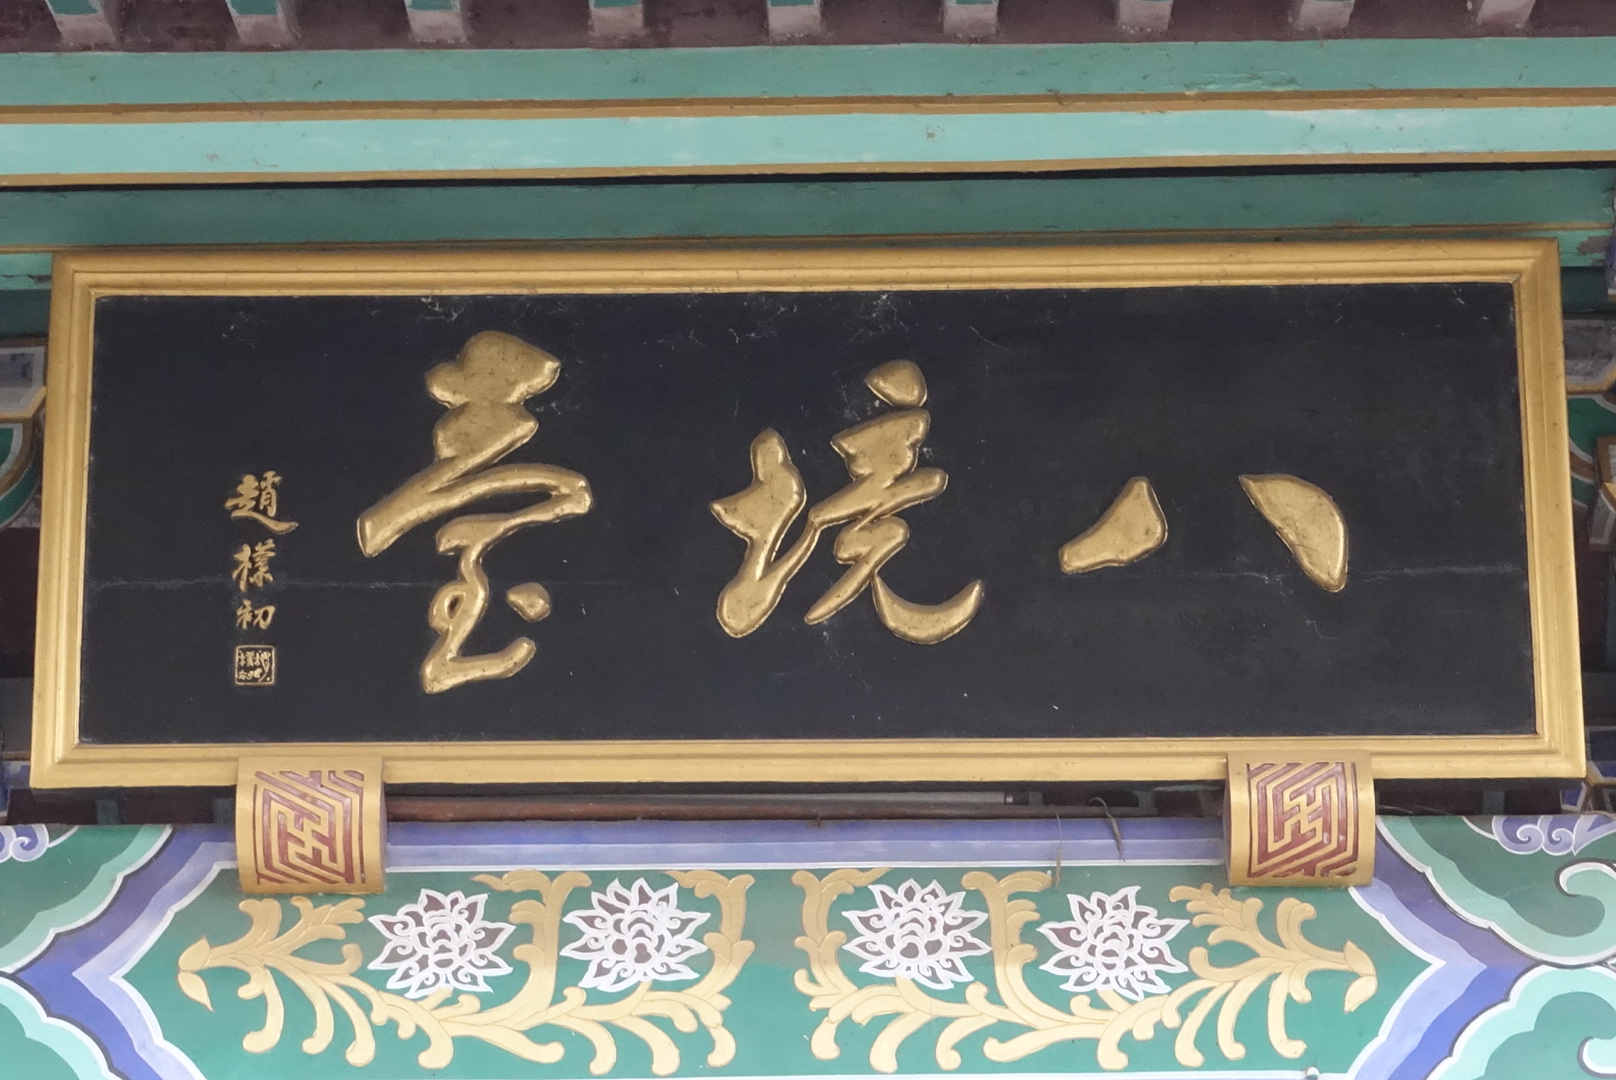 八境臺
趙樸初